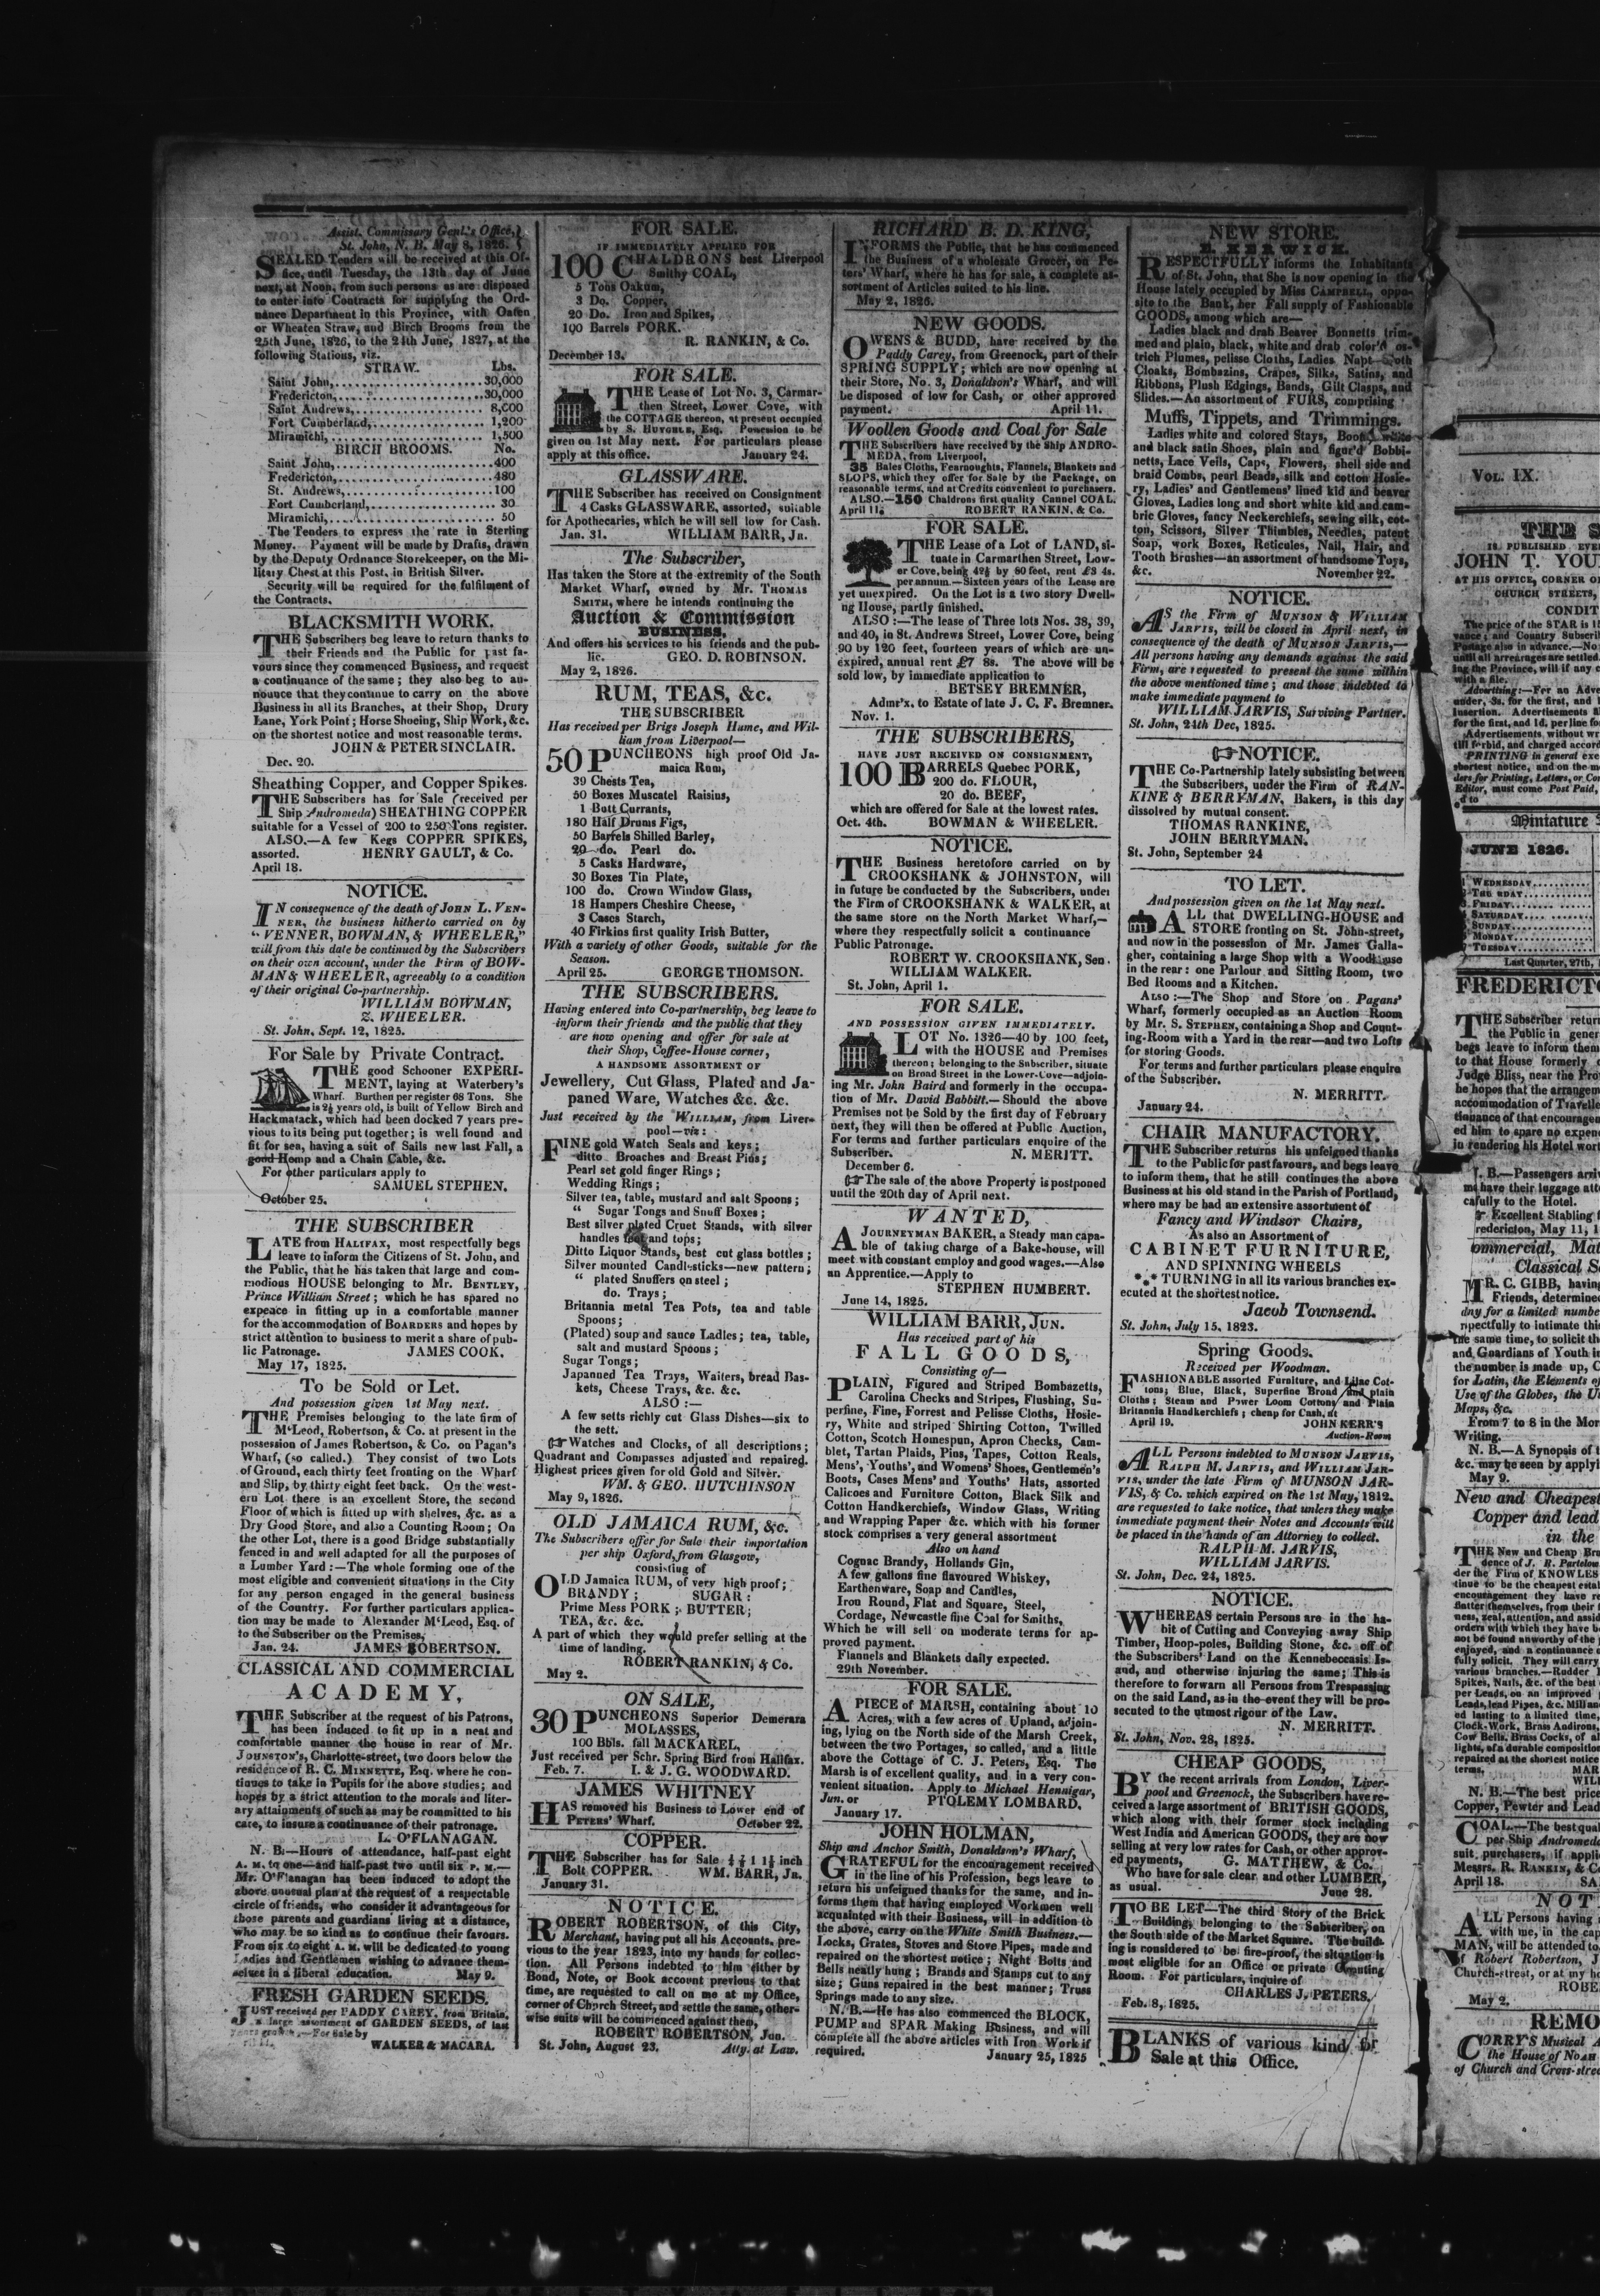 Assist. Commissary Genl.'s Office,
St. John, N. B. May 8, 1826.
SEALED Tenders will be received at this Of-
fice, until Tuesday, the 13th day of June
next, at Noon, from such persons as are disposed
to enter into Contracts for supplying the Ord-
nance Department in this Province, with Oaten
or Wheaten Straw, and Birch Brooms from the
25th June, 1826, to the 24th June, 1827, at the
following Stations, viz.
STRAW. Lbs.
Saint John,........................30,000
Fredericton,.......................30,000
Saint Andrews,.....................8,000
Fort Cumberland,...................1,200
Miramichi,.........................1,500
BIRCH BROOMS. No.
Saint John,........................400
Fredericton,.......................480
St. Andrews,.......................100
Fort Cumberland,...................30
Miramichi,.........................50
The Tenders to express the rate in Sterling
Money. Payment will be made by Drafts, drawn
by the Deputy Ordnance Storekeeper, on the Mi-
litary Chest at this Post, in British Silver.
Security will be required for the fulfilment of
the Contracts.
BLACKSMITH WORK.
THE Subscribers beg leave to return thanks to
their Friends and the Public for past fa-
vours since they commenced Business, and request
a continuance of the same; they also beg to an-
nounce that they continue to carry on the above
Business in all its Branches, at their Shop, Drury
Lane, York Point; Horse Shoeing, Ship Work, &c.
on the shortest notice and most reasonable terms.
JOHN & PETER SINCLAIR.
Dec. 20.
Sheathing Copper, and Copper Spikes.
THE Subscribers has for Sale (received per
Ship Andromeda) SHEATHING COPPER
suitable for a Vessel of 200 to 250 Tons register.
ALSO.—A few Kegs COPPER SPIKES,
assorted. HENRY GAULT, & Co.
April 18.
NOTICE.
IN consequence of the death of JOHN L. VEN-
NER, the business hitherto carried on by
"VENNER, BOWMAN, & WHEELER,"
will from this date be continued by the Subscribers
on their own account, under the Firm of BOW-
MAN & WHEELER, agreeably to a condition
of their original Co-partnership.
WILLIAM BOWMAN,
Z. WHEELER.
St. John, Sept. 12, 1825.
For Sale by Private Contract.
THE good Schooner EXPERI-
MENT, laying at Waterbery's
Wharf. Burthen per register 68 Tons. She
is 2½ years old, is built of Yellow Birch and
Hackmatack, which had been docked 7 years pre-
vious to its being put together; is well found and
fit for sea, having a suit of Sails new last Fall, a
good Hemp and a Chain Cable, &c.
For other particulars apply to
SAMUEL STEPHEN.
October 25.
THE SUBSCRIBER
LATE from HALIFAX, most respectfully begs
leave to inform the Citizens of St. John, and
the Public, that he has taken that large and com-
modious HOUSE belonging to Mr. BENTLEY,
Prince William Street; which he has spared no
expence in fitting up in a comfortable manner
for the accommodation of BOARDERS and hopes by
strict attention to business to merit a share of pub-
lic Patronage. JAMES COOK.
May 17, 1825.
To be Sold or Let.
And possession given 1st May next.
THE Premises belonging to the late firm of
M'Leod, Robertson, & Co. at present in the
possession of James Robertson, & Co. on Pagan's
Wharf, (so called.) They consist of two Lots
of Ground, each thirty feet fronting on the Wharf
and Slip, by thirty eight feet back. On the west-
ern Lot there is an excellent Store, the second
Floor of which is fitted up with shelves, &c. as a
Dry Good Store, and also a Counting Room; On
the other Lot, there is a good Bridge substantially
fenced in and well adapted for all the purposes of
a Lumber Yard:—The whole forming one of the
most eligible and convenient situations in the City
for any person engaged in the general business
of the Country. For further particulars applica-
tion may be made to Alexander M'Leod, Esq. of
to the Subscriber on the Premises,
Jan. 24. JAMES ROBERTSON.
CLASSICAL AND COMMERCIAL
ACADEMY,
THE Subscriber at the request of his Patrons,
has been induced to fit up in a neat and
comfortable manner the house in rear of Mr.
JOHNSTON'S, Charlotte-street, two doors below the
residence of R. C. MINNETTE, Esq. where he con-
tinues to take in Pupils for the above studies; and
hopes by a strict attention to the morals and liter-
ary attainments of such as may be committed to his
care, to insure a continuance of their patronage.
L. O'FLANAGAN.
N. B.—Hours of attendance, half-past eight
A. M. to one—and half-past two until six P. M.—
Mr. O'Flanagan has been induced to adopt the
above unusual plan at the request of a respectable
circle of friends, who consider it advantageous for
those parents and guardians living at a distance,
who may be so kind as to continue their favours.
From six to eight A. M. will be dedicated to young
Ladies and Gentlemen wishing to advance them-
selves in a liberal education. May 9.
FRESH GARDEN SEEDS.
JUST received per PADDY CAREY, from Britain,
a large assortment of GARDEN SEEDS, of last
years growth.—For sale by
WALKER & MACARA.
FOR SALE.
IF IMMEDIATELY APPLIED FOR
100 CHALDRONS best Liverpool
Smithy COAL,
5 Tons Oakum,
3 Do. Copper,
20 Do. Iron and Spikes,
100 Barrels PORK.
R. RANKIN, & Co.
December 13.
FOR SALE.
THE Lease of Lot No. 3, Carmar-
then Street, Lower Cove, with
the COTTAGE thereon, at present occupied
by S. HUYGHUE, Esq. Possession to be
given on 1st May next. For particulars please
apply at this office. January 24.
GLASSWARE.
THE Subscriber has received on Consignment
4 Casks GLASSWARE, assorted, suitable
for Apothecaries, which he will sell low for Cash.
Jan. 31. WILLIAM BARR, Jn.
The Subscriber,
Has taken the Store at the extremity of the South
Market Wharf, owned by Mr. THOMAS
SMITH, where he intends continuing the
Auction & Commission
BUSINESS,
And offers his services to his friends and the pub-
lic. GEO. D. ROBINSON.
May 2, 1826.
RUM, TEAS, &c.
THE SUBSCRIBER
Has received per Brigs Joseph Hume, and Wil-
liam from Liverpool—
50 PUNCHEONS high proof Old Ja-
maica Rum,
39 Chests Tea,
50 Boxes Muscatel Raisins,
1 Butt Currants,
180 Half Drums Figs,
50 Barrels Shilled Barley,
20 do. Pearl do.
5 Casks Hardware,
30 Boxes Tin Plate,
100 do. Crown Window Glass,
18 Hampers Cheshire Cheese,
3 Cases Starch,
40 Firkins first quality Irish Butter,
With a variety of other Goods, suitable for the
Season.
April 25. GEORGE THOMSON.
THE SUBSCRIBERS.
Having entered into Co-partnership, beg leave to
inform their friends and the public that they
are now opening and offer for sale at
their Shop, Coffee-House corner,
A HANDSOME ASSORTMENT OF
Jewellery, Cut Glass, Plated and Ja-
paned Ware, Watches &c. &c.
Just received by the WILLIAM, from Liver-
pool—viz:
FINE gold Watch Seals and keys;
ditto Broaches and Breast Pins;
Pearl set gold finger Rings;
Wedding Rings;
Silver tea, table, mustard and salt Spoons;
" Sugar Tongs and Snuff Boxes;
Best silver plated Cruet Stands, with silver
handles feet and tops;
Ditto Liquor Stands, best cut glass bottles;
Silver mounted Candlesticks—new pattern;
" plated Snuffers on steel;
do. Trays;
Britannia metal Tea Pots, tea and table
Spoons;
(Plated) soup and sauce Ladles; tea, table,
salt and mustard Spoons;
Sugar Tongs;
Japanned Tea Trays, Waiters, bread Bas-
kets, Cheese Trays, &c. &c.
ALSO:—
A few setts richly cut Glass Dishes—six to
the sett.
☞ Watches and Clocks, of all descriptions;
Quadrant and Compasses adjusted and repaired.
Highest prices given for old Gold and Silver.
WM. & GEO. HUTCHINSON
May 9, 1826.
OLD JAMAICA RUM, &c.
The Subscribers offer for Sale their importation
per ship Oxford, from Glasgow,
consisting of
OLD Jamaica RUM, of very high proof;
BRANDY; SUGAR:
Prime Mess PORK; BUTTER;
TEA, &c. &c.
A part of which they would prefer selling at the
time of landing.
ROBERT RANKIN, & Co.
May 2.
ON SALE,
30 PUNCHEONS Superior Demerara
MOLASSES,
100 Bbls. fall MACKAREL,
Just received per Schr. Spring Bird from Halifax.
Feb. 7. I. & J. G. WOODWARD.
JAMES WHITNEY
HAS removed his Business to Lower end of
PETERS' Wharf. October 22.
COPPER.
THE Subscriber has for Sale 1 1½ inch
Bolt COPPER. WM. BARR, Jn.
January 31.
NOTICE.
ROBERT ROBERTSON, of this City,
Merchant, having put all his Accounts, pre-
vious to the year 1823, into my hands for collec-
tion. All Persons indebted to him either by
Bond, Note, or Book account previous to that
time, are requested to call on me at my Office,
corner of Church Street, and settle the same, other-
wise suits will be commenced against them,
ROBERT ROBERTSON, Jun.
St. John, August 23. Atty. at Law.
RICHARD B. D. KING,
INFORMS the Public, that he has commenced
the Business of a wholesale Grocer, on Pe-
ters' Wharf, where he has for sale, a complete as-
sortment of Articles suited to his line.
May 2, 1826.
NEW GOODS.
OWENS & BUDD, have received by the
Paddy Carey, from Greenock, part of their
SPRING SUPPLY; which are now opening at
their Store, No. 3, Donaldson's Wharf, and will
be disposed of low for Cash, or other approved
payment. April 11.
Woollen Goods and Coal for Sale
THE Subscribers have received by the Ship ANDRO-
MEDA, from Liverpool,
35 Bales Cloths, Fearnoughts, Flannels, Blankets and
SLOPS, which they offer for Sale by the Package, on
reasonable terms, and at Credits convenient to purchasers.
ALSO.—150 Chaldrons first quality Cannel COAL.
April 11. ROBERT RANKIN, & Co.
FOR SALE.
THE Lease of a Lot of LAND, si-
tuate in Carmarthen Street, Low-
er Cove, being 42½ by 60 feet, rent £3 4s.
per annum.—Sixteen years of the Lease are
yet unexpired. On the Lot is a two story Dwell-
ng House, partly finished.
ALSO:—The lease of Three lots Nos. 38, 39,
and 40, in St. Andrews Street, Lower Cove, being
90 by 120 feet, fourteen years of which are un-
expired, annual rent £7 8s. The above will be
sold low, by immediate application to
BETSEY BREMNER,
Admr'x. to Estate of late J. C. F. Bremner.
Nov. 1.
THE SUBSCRIBERS,
HAVE JUST RECEIVED ON CONSIGNMENT,
100 BARRELS Quebec PORK,
200 do. FLOUR,
20 do. BEEF,
which are offered for Sale at the lowest rates.
Oct. 4th. BOWMAN & WHEELER.
NOTICE.
THE Business heretofore carried on by
CROOKSHANK & JOHNSTON, will
in future be conducted by the Subscribers, under
the Firm of CROOKSHANK & WALKER, at
the same store on the North Market Wharf,—
where they respectfully solicit a continuance
Public Patronage.
ROBERT W. CROOKSHANK, Sen.
WILLIAM WALKER.
St. John, April 1.
FOR SALE.
AND POSSESSION GIVEN IMMEDIATELY.
LOT No. 1326—40 by 100 feet,
with the HOUSE and Premises
thereon; belonging to the Subscriber, situate
on Broad Street in the Lower-Cove—adjoin-
ing Mr. John Baird and formerly in the occupa-
tion of Mr. David Babbitt.—Should the above
Premises not be Sold by the first day of February
next, they will then be offered at Public Auction,
For terms and further particulars enquire of the
Subscriber. N. MERITT.
December 6.
☞ The sale of the above Property is postponed
until the 20th day of April next.
WANTED,
A JOURNEYMAN BAKER, a Steady man capa-
ble of taking charge of a Bake-house, will
meet with constant employ and good wages.—Also
an Apprentice.—Apply to
STEPHEN HUMBERT.
June 14, 1825.
WILLIAM BARR, JUN.
Has received part of his
FALL GOODS,
Consisting of—
PLAIN, Figured and Striped Bombazetts,
Carolina Checks and Stripes, Flushing, Su-
perfine, Fine, Forrest and Pelisse Cloths, Hosie-
ry, White and striped Shirting Cotton, Twilled
Cotton, Scotch Homespun, Apron Checks, Cam-
blet, Tartan Plaids, Pins, Tapes, Cotton Reals,
Mens', Youths', and Womens' Shoes, Gentlemen's
Boots, Cases Mens' and Youths' Hats, assorted
Calicoes and Furniture Cotton, Black Silk and
Cotton Handkerchiefs, Window Glass, Writing
and Wrapping Paper &c. which with his former
stock comprises a very general assortment
Also on hand
Cognac Brandy, Hollands Gin,
A few gallons fine flavoured Whiskey,
Earthenware, Soap and Candles,
Iron Round, Flat and Square, Steel,
Cordage, Newcastle fine Coal for Smiths,
Which he will sell on moderate terms for ap-
proved payment.
Flannels and Blankets daily expected.
29th November.
FOR SALE.
A PIECE of MARSH, containing about 10
Acres, with a few acres of Upland, adjoin-
ing, lying on the North side of the Marsh Creek,
between the two Portages, so called, and a little
above the Cottage of C. J. Peters, Esq. The
Marsh is of excellent quality, and in a very con-
venient situation. Apply to Michael Hennigar,
Jun. or PTOLEMY LOMBARD.
January 17.
JOHN HOLMAN,
Ship and Anchor Smith, Donaldson's Wharf,
GRATEFUL for the encouragement received
in the line of his Profession, begs leave to
return his unfeigned thanks for the same, and in-
forms them that having employed Workmen well
acquainted with their Business, will in addition to
the above, carry on the White Smith Business.—
Locks, Grates, Stoves and Stove Pipes, made and
repaired on the shortest notice; Night Bolts and
Bells neatly hung; Brands and Stamps cut to any
size; Guns repaired in the best manner; Truss
Springs made to any size.
N. B.—He has also commenced the BLOCK,
PUMP and SPAR Making Business, and will
complete all the above articles with Iron Work if
required. January 25, 1825
NEW STORE.
E. KERWICK.
RESPECTFULLY informs the Inhabitants
of St. John, that She is now opening in the
House lately occupied by Miss CAMPBELL, oppo-
site to the Bank, her Fall supply of Fashionable
GOODS, among which are—
Ladies black and drab Beaver Bonnetts trim-
med and plain, black, white and drab color'd os-
trich Plumes, pelisse Cloths, Ladies Napt Cloth
Cloaks, Bombazins, Crapes, Silks, Satins, and
Ribbons, Plush Edgings, Bands, Gilt Clasps, and
Slides.—An assortment of FURS, comprising
Muffs, Tippets, and Trimmings.
Ladies white and colored Stays, Boots, white
and black satin Shoes, plain and figur'd Bobbi-
netts, Lace Veils, Caps, Flowers, shell side and
braid Combs, pearl Beads, silk and cotton Hosie-
ry, Ladies' and Gentlemens' lined kid and beaver
Gloves, Ladies long and short white kid and cam-
bric Gloves, fancy Neckerchiefs, sewing silk, cot-
ton, Scissors, Silver Thimbles, Needles, patent
Soap, work Boxes, Reticules, Nail, Hair, and
Tooth Brushes—an assortment of handsome Toys,
&c. November 22.
NOTICE.
AS the Firm of MUNSON & WILLIAM
JARVIS, will be closed in April next, in
consequence of the death of MUNSON JARVIS,—
All persons having any demands against the said
Firm, are requested to present the same within
the above mentioned time; and those indebted to
make immediate payment to
WILLIAM JARVIS, Surviving Partner.
St. John, 24th Dec, 1825.
☞NOTICE.
THE Co-Partnership lately subsisting between
the Subscribers, under the Firm of RAN-
KINE & BERRYMAN, Bakers, is this day
dissolved by mutual consent.
THOMAS RANKINE,
JOHN BERRYMAN.
St. John, September 24
TO LET.
And possession given on the 1st May next.
ALL that DWELLING-HOUSE and
STORE fronting on St. John-street,
and now in the possession of Mr. James Galla-
gher, containing a large Shop with a Woodhouse
in the rear: one Parlour and Sitting Room, two
Bed Rooms and a Kitchen.
ALSO:—The Shop and Store on Pagans'
Wharf, formerly occupied as an Auction Room
by Mr. S. STEPHEN, containing a Shop and Count-
ing-Room with a Yard in the rear—and two Lofts
for storing Goods.
For terms and further particulars please enquire
of the Subscriber.
N. MERRITT.
January 24.
CHAIR MANUFACTORY.
THE Subscriber returns his unfeigned thanks
to the Public for past favours, and begs leave
to inform them, that he still continues the above
Business at his old stand in the Parish of Portland,
where may be had an extensive assortment of
Fancy and Windsor Chairs,
As also an Assortment of
CABINET FURNITURE,
AND SPINNING WHEELS
*** TURNING in all its various branches ex-
ecuted at the shortest notice.
Jacob Townsend.
St. John, July 15, 1823.
Spring Goods.
Received per Woodman.
FASHIONABLE assorted Furniture, and Lilac Cot-
tons; Blue, Black, Superfine Broad and plain
Cloths; Steam and Power Loom Cottons and Plain
Britannia Handkerchiefs; cheap for Cash, at
April 19. JOHN KERR'S
Auction-Room
ALL Persons indebted to MUNSON JARVIS,
RALPH M. JARVIS, and WILLIAM JAR-
VIS, under the late Firm of MUNSON JAR-
VIS, & Co. which expired on the 1st May, 1812.
are requested to take notice, that unless they make
immediate payment their Notes and Accounts will
be placed in the hands of an Attorney to collect.
RALPH M. JARVIS,
WILLIAM JARVIS.
St. John, Dec. 24, 1825.
NOTICE.
WHEREAS certain Persons are in the ha-
bit of Cutting and Conveying away Ship
Timber, Hoop-poles, Building Stone, &c. off of
the Subscribers' Land on the Kennebeccasis Is-
and, and otherwise injuring the same; This is
therefore to forwarn all Persons from Trespassing
on the said Land, as in the event they will be pro-
secuted to the utmost rigour of the Law.
N. MERRITT.
St. John, Nov. 28, 1825.
CHEAP GOODS,
BY the recent arrivals from London, Liver-
pool and Greenock, the Subscribers have re-
ceived a large assortment of BRITISH GOODS,
which along with their former stock including
West India and American GOODS, they are now
selling at very low rates for Cash, or other approv-
ed payments, G. MATTHEW, & Co.
Who have for sale clear and other LUMBER,
as usual. June 28.
TO BE LET—The third Story of the Brick
Building, belonging to the Subscriber, on
the South side of the Market Square. The build-
ing is considered to be fire-proof, the situation is
most eligible for an Office or private Counting
Room. For particulars, inquire of
CHARLES J. PETERS.
Feb. 8, 1825.
BLANKS of various kind for
Sale at this Office.
VOL. IX.
THE S
IS PUBLISHED EVE
JOHN T. YOU
AT HIS OFFICE, CORNER O
CHURCH STREETS,
CONDIT
The price of the STAR is 15
vance; and Country Subscri
Postage also in advance.—No
until all arrearages are settled.
ing the Province, will if any c
with a file.
Advertising:—For an Adve
under, 3s. for the first, and 1
Insertion. Advertisements a
for the first, and 1d. per line for
Advertisements without wr
till forbid, and charged accord
PRINTING in general exe
shortest notice, and on the m
ders for Printing, Letters, or Co
Editor, must come Post Paid,
d to
Miniature
JUNE 1826.
WEDNESDAY
FRIDAY
SATURDAY
SUNDAY
MONDAY
TUESDAY
Last Quarter, 27th,
FREDERICTO
THE Subscriber return
the Public in gener
begs leave to inform them
to that House formerly
Judge Bliss, near the Pro
he hopes that the arrangem
accommodation of Travelle
tinuance of that encourage
ed him to spare no expen
in rendering his Hotel wort
B.—Passengers arriv
have their luggage atte
cafully to the Hotel.
Excellent Stabling f
redericton, May 11, 1
ommercial, Mat
Classical S
MR. C. GIBB, having
Friends, determine
dny for a limited numbe
rpectfully to intimate thi
same time, to solicit th
and Guardians of Youth in
the number is made up,
for Latin, the Elements of
Use of the Globes, the U
Maps, &c.
From 7 to 8 in the Mor
Writing.
N. B.—A Synopsis of t
&c. may be seen by applyi
May 9.
New and Cheapest
Copper and lead
in the
THE New and Cheap Bra
dence of J. R. Partelow
der the Firm of KNOWLES
tinue to be the cheapest estal
encouragement they have re
flatter themselves, from their
ness, zeal, attention, and assid
orders with which they have b
not be found unworthy of the
enjoyed, and a continuance
fully solicit. They will carry
various branches.—Rudder
Spikes, Nails, &c. of the best
per Leads, on an improved
Leads, lead Pipes, &c. Mill and
ed lasting to a limited time,
Clock-Work, Brass Andirons,
Cow Bells, Brass Cocks, of al
lights, of a durable composition
repaired at the shortest notice
terms, MAR
WIL
N. B.—The best price
Copper, Pewter and Lead
COAL.—The best qual
per Ship Andromeda
suit purchasers, if appli
Messrs. R. RANKIN, & C
April 18. SA
NOT
ALL Persons having
with me, in the cap
MAN, will be attended to
Robert Robertson, J
Church-street, or at my ho
ROBE
May 2.
REMO
CORRY'S Musical A
the House of NOAH
of Church and Cross-stree